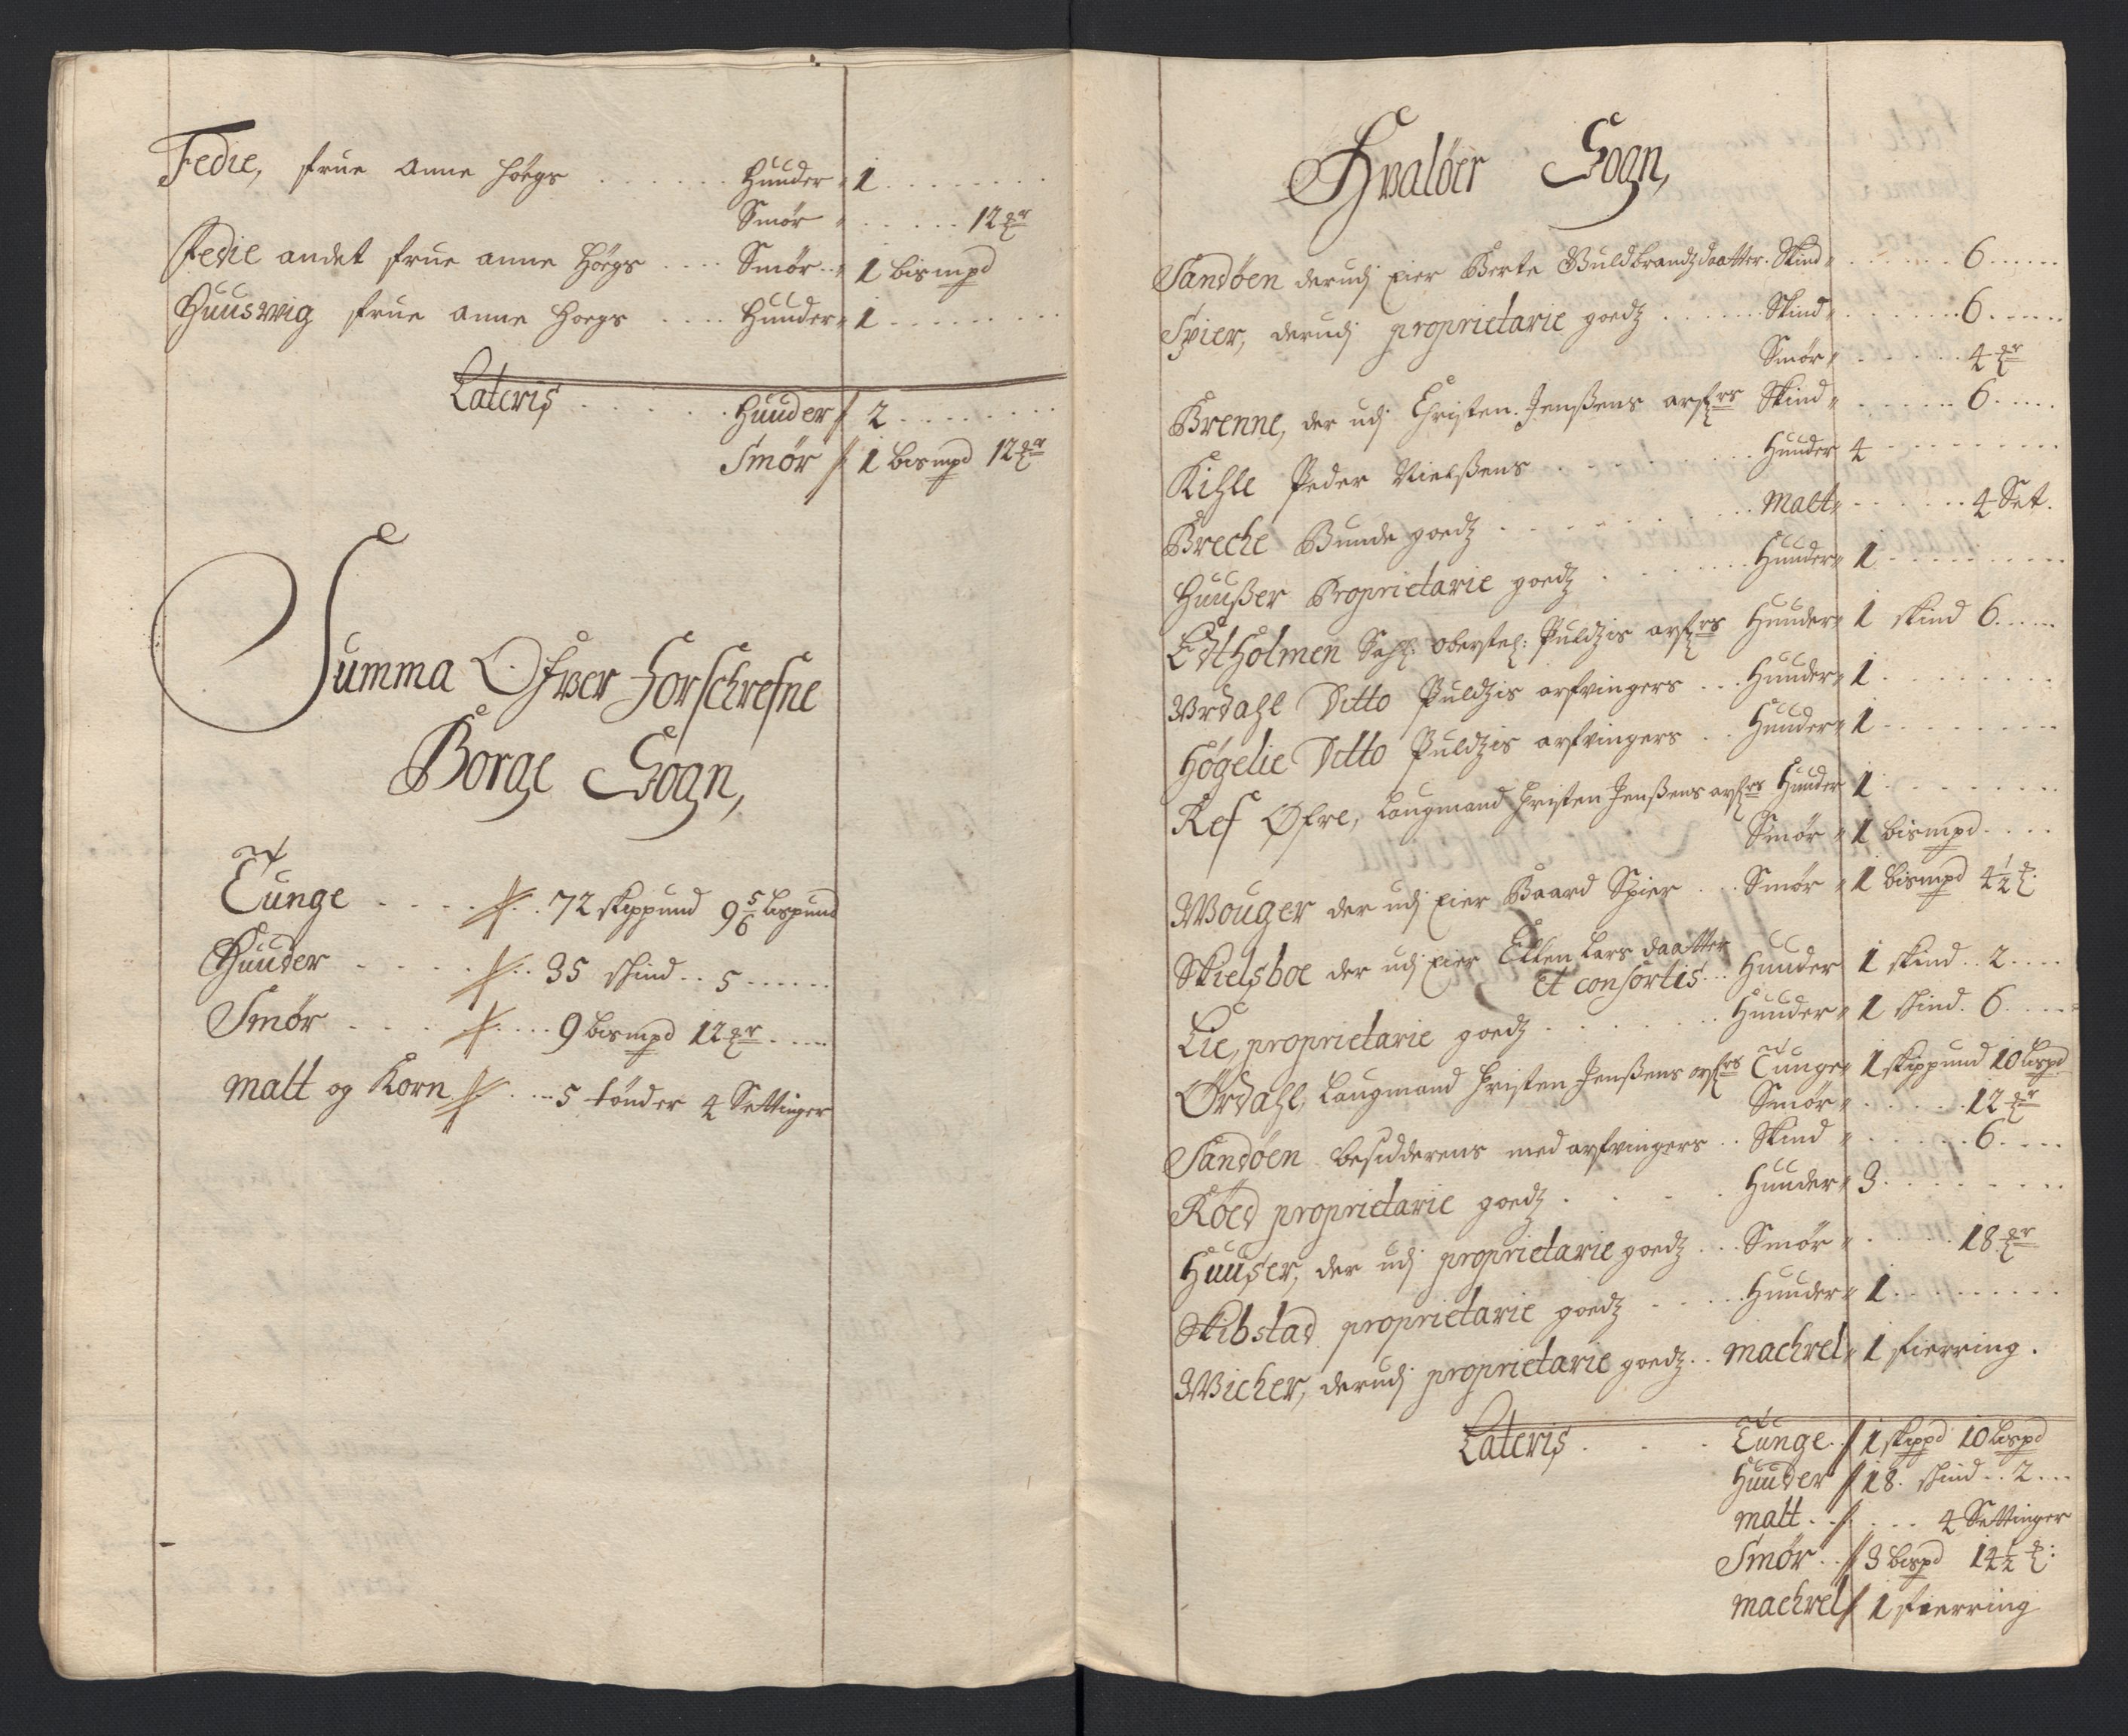 Fedie, frue Anne Høegs ...... Huuder " 1 ........
Smør " ..... 12 ℔r
Fedie andet frue anne Høegs .... Smør .. " 1 bismpd
Huuswig frue anne Hoegs .... Huuder " 1 .........
Lateris ...... Huuder // 2 ........
Smør // 1 bismpd 12 ℔r
Summa Ofwer Forschrefne
Borge Sogn,
Tunge .... // .. 72 skippund 9 5/6 lispund
Huuder .... // .. 35 skind .. 5 ......
Smør .... // .... 9 bismpd 12 ℔r .....
Malt og Korn // .... 5 tønder 4 Settinger
Hvaløer Sogn,
Sandøen derudj Eier Berte Guldbrandzdaatter. Skind " ...... 6 .....
Spier, derudj proprietarie goedz ...... Skind " ...... 6 .....
Smør " ..... 4 ℔r
Brenne, der udj Christen Jenßens arfrs Skind " ..... 6 .....
Kihle Peder Nielßens ........ Huuder 4 ........
Breche Bunde goedz ........ Malt " ...... 4 Set.
Huußer Proprietarie goedz ...... Huuder " 1 ........
Edtholmen Sahl. oberstel: Puldzis arfrs Huuder " 1 skind 6 .....
Wrdahl Ditto Puldzis arfvingers ... Huuder " 1 ........
Høgelie Ditto Puldzis arfvingers .. Huuder " 1 ........
Ref Øfre, Laugmand Christen Jenßens arfrs Huuder 1 ........
Smør " 1 bismpd ....
Wouger der udj Eier Baard Spier ... Smør " 1 bismpd 4 1/2 ℔.
Skielsboe der udj Eier Ellen Lars daatter
et consortis ... Huuder 1 skind .. 2 ....
Lie, proprietarie goedz ...... Huuder " 1 skind. 6 .....
Ørdahl, Laugmand Christen Jenßens arfrs Tunge " 1 skippund 10 Lispd
Smør " ..... 12 ℔r
Sandøen besidderens med arfvingers .. Skind " ..... 6 ....
Røed proprietarie goedz ..... Huuder " 3 ........
Huuser, der udj proprietarie goedz ... Smør " ..... 18 ℔r
Skibstad proprietarie goedz ..... Huuder " 1 ........
Wicher, derudj proprietarie goedz .. Machrel " 1 fierring.
Lateris ... Tunge // 1 skippd 10 Lispd
Huuder // 18. skind .. 2 ...
Malt .. // ... 4 Settinger
Smør .. // 3 bispd 14 1/2 ℔:
Machrel // 1 fierring